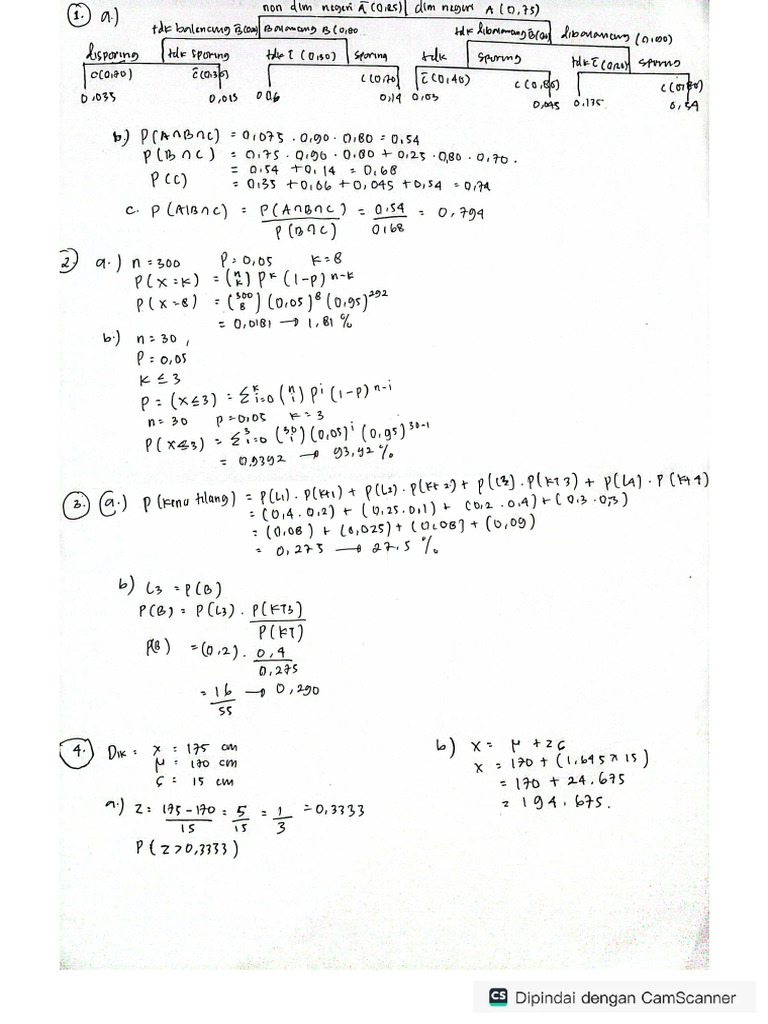 1. a.) non dlm negeri Ā (0,25) dlm negeri A (0,75)
B Balancing B (0,80
(0,90)
tdk sparing tdk Sparing tdk Sparing Sparing
C(0,70) C̄(0,30) C(0,70) C̄(0,40)
0,035 0,015 0,06 0,14 0,03 0,045 0,135 0,54
b.) P(A∩B∩C) = 0,075 . 0,90 . 0,80 = 0,54
P(B∩C) = 0,75 . 0,90 . 0,80 + 0,25 . 0,80 . 0,70.
= 0,54 + 0,14 = 0,68
P(C) = 0,35 + 0,06 + 0,045 + 0,54 = 0,74
C. P(A|B∩C) = P(A∩B∩C) / P(B∩C) = 0,54 / 0,68 = 0,794
2. a.) n = 300 P = 0,05 K = 8
P(X=K) = (n K) P^K (1-P)^n-K
P(X=8) = (300 8) (0,05)^8 (0,95)^292
= 0,0181 → 1,81 %
b.) n = 30,
P = 0,05
K ≤ 3
P = (X≤3) = Σ^K i=0 (n i) P^i (1-P)^n-i
n = 30 P = 0,05 K = 3
P(X≤3) = Σ^3 i=0 (30 i) (0,05)^i (0,95)^30-1
= 0,9392 → 93,92 %
3. a.) P(kena tilang) = P(L1) . P(KT1) + P(L2) . P(KT2) + P(L3) . P(KT3) + P(L4) . P(KT4)
= (0,4 . 0,2) + (0,25 . 0,1) + (0,2 . 0,4) + (0,3 . 0,3)
= (0,08) + (0,025) + (0,08) + (0,09)
= 0,275 → 27,5 %
b) L3 = P(B)
P(B) = P(L3) . P(KT3) / P(KT)
P(B) = (0,2) . 0,4 / 0,275
= 16 / 55 → 0,290
4. Dik : x : 175 cm
μ : 170 cm
ς : 15 cm
a.) Z = 175 - 170 / 15 = 5 / 15 = 1 / 3 = 0,3333
P(Z > 0,3333)
b) X = μ + Zς
X = 170 + (1,645 x 15)
= 170 + 24.675
= 194.675.
CS Dipindai dengan CamScanner